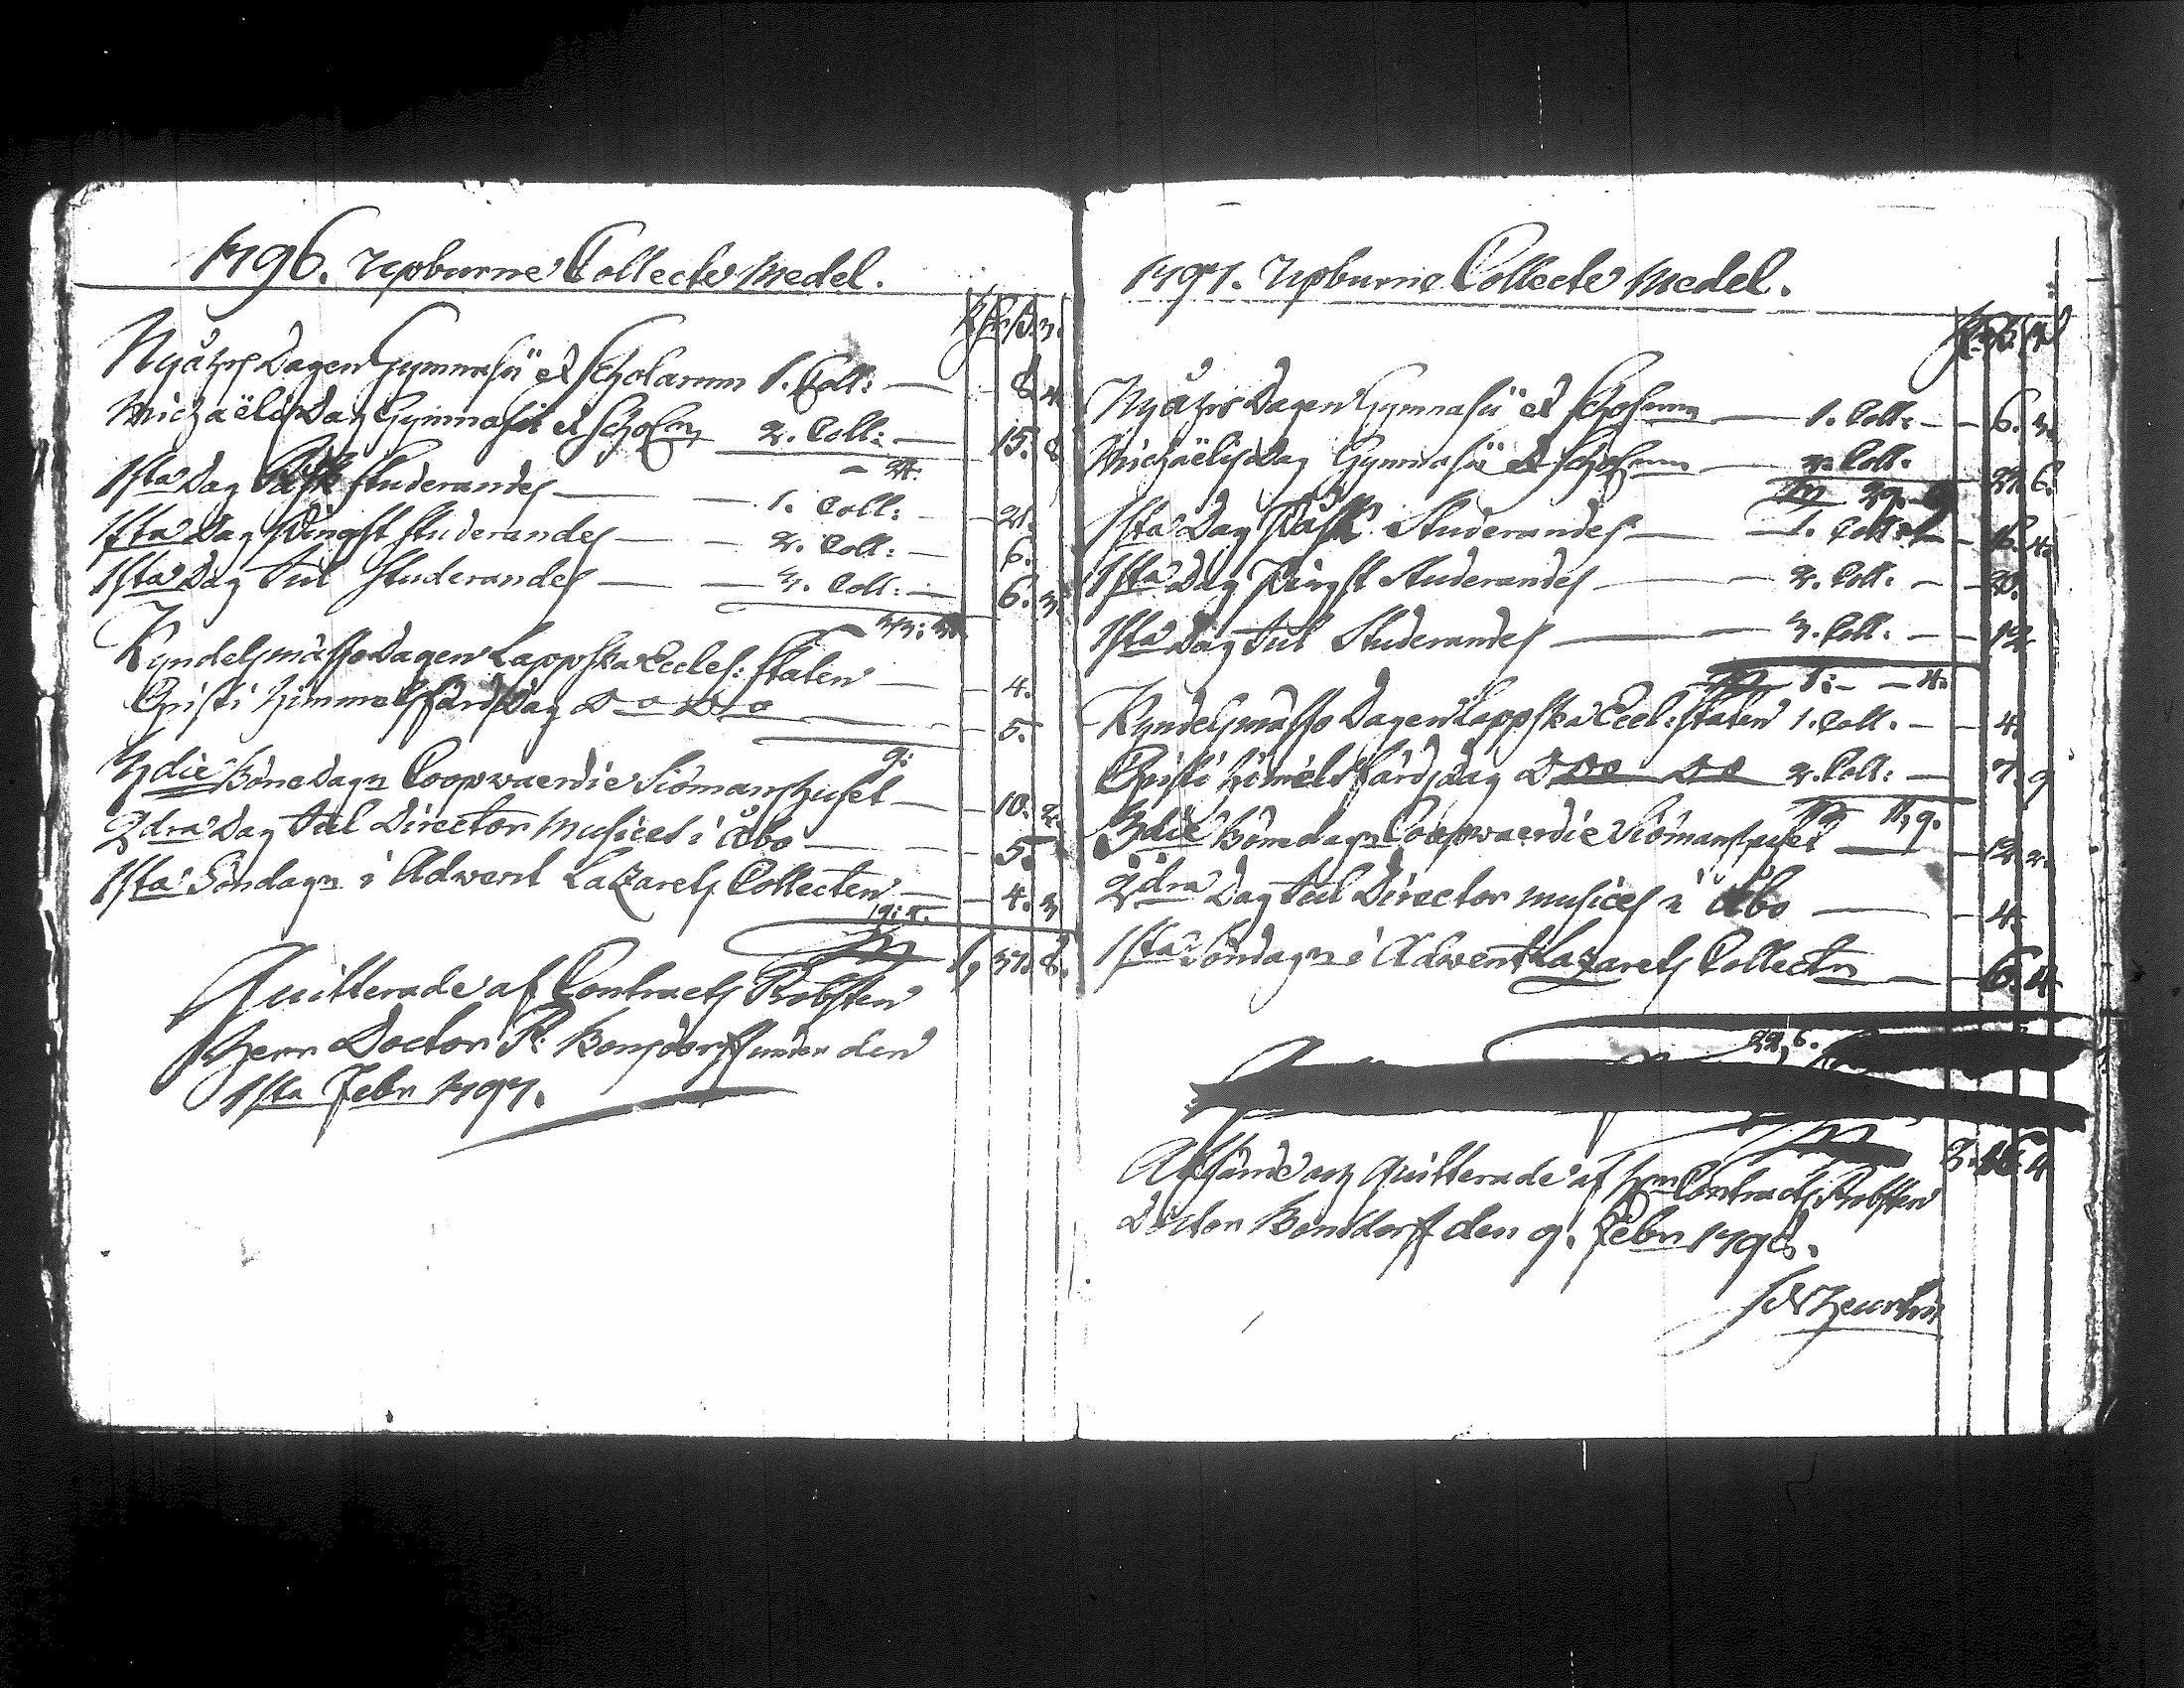 1796. Upburne Collecte Medel.
Nyåhrs Dagen Gymnasii et Scholarum 1. Coll: — 8. 4.
Michaëlis Dag Gymnasii et Schol^m 2. Coll: — 15. 8.
24.
1sta Dag Påsk Studerandes — 1. Coll: — 21.
1sta Dag Pingst Studerandes — 2. Coll: — 6.
1sta Dag Jul Studerandes — 3. Coll: — 6. 3.
33: 3.
Kyndelsmässo Dagen Lappska Eccles: Staten — 4.
Christi Himmelsfärds Dag D o D o — 5.
9:
3die Bönedag^n Coopvaerdie Siömanshuset — 10. 2.
2dra Dag Jul Director Musices i Åbo — 5.
1sta Söndag^n i Adwent Lazarets Collecten — 4. 3.
19: 5.
1, 37. 8.
Quitterade af Contracts Probsten
Herr Doctor P. Bonsdorff under den
1sta Febr 1797.
1797. Upburne Collecte Medel.
Nyåhrs Dagen Gymnasii et Schol^m — 1. Coll: — 6. 3.
Michaëlis Dag Gymnasii et Schol^m — 2. Coll. 6.
1sta Dag Påsk Studerandes — 1. Coll: — 4.
1sta Dag Pingst Studerandes — 2. Coll: — 20.
1sta Dag Jul Studerandes — 3. Coll. — 12
1: — 4.
Kyndelsmässo Dagen Lappska Eccl: Staten 1. Coll. — 4.
Christi Himelsfärds Dag D o D o 2. Coll: — 7. 9
11, 9.
3die Bönedag^n Coopvaerdie Siömanshuset — 12. 2.
2dra Dag Jul Director Musices i Åbo — 4.
1sta Söndag^n i Adwent Lazarets Collect^n — 6. 4.
22, 6.
Afsände och Quitterade af H^rn Contracts Probsten
Doctor Bonsdorff den 9. Febr 1798.